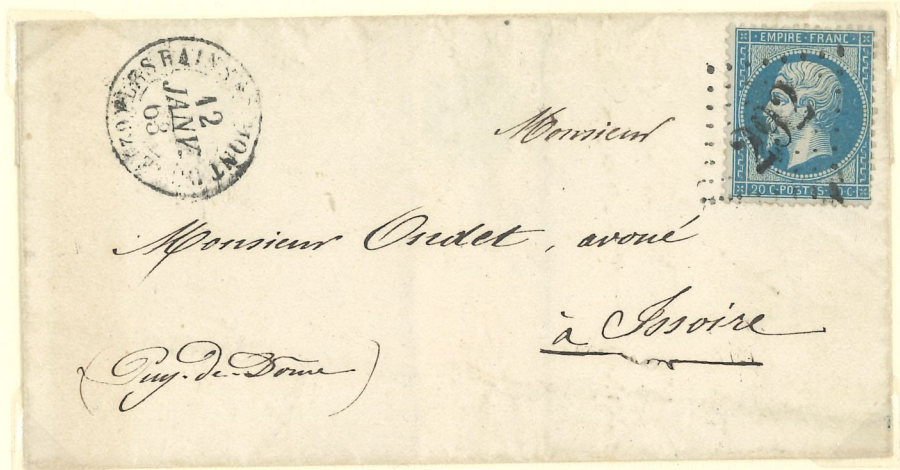 LES BAINS
MONT
12
JANV.
63
EMPIRE FRANC
292
20 C POSTES 20 C
Monsieur
Monsieur Oudet, avoué
à Issoire
(Puy-de-Dôme)